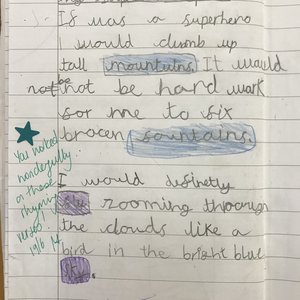 If was a superhero
I would clumb up
tall mountains. It would
not be hard work
for me to six
brocen fountains.
I would definetly
fly zooming through
the clouds like a
bird in the bright blue
sky.
You worked
wonderfully
on these
rhyming